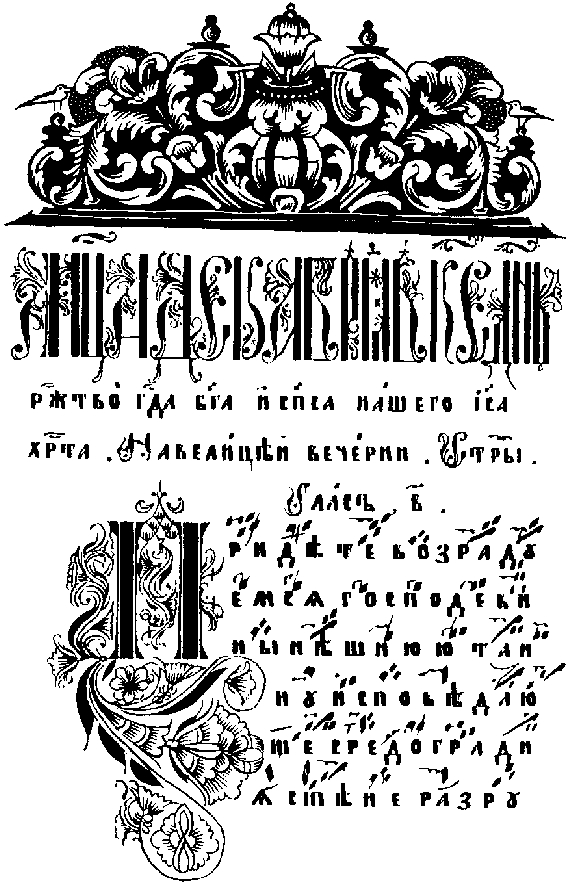 рж҃тво̀ гдⷭ҇а бг҃а и҆ сп҃са на́шего і҆с҃а
хрⷭ҇та . На вели́цѣй вече́рни . Стⷯры .
Гла́съ . в҃ .
Приди́те возраду
емся господеви
нынѣшнюю таи
ну исповѣдаю
ще средоградн
ѧ стѣние разру